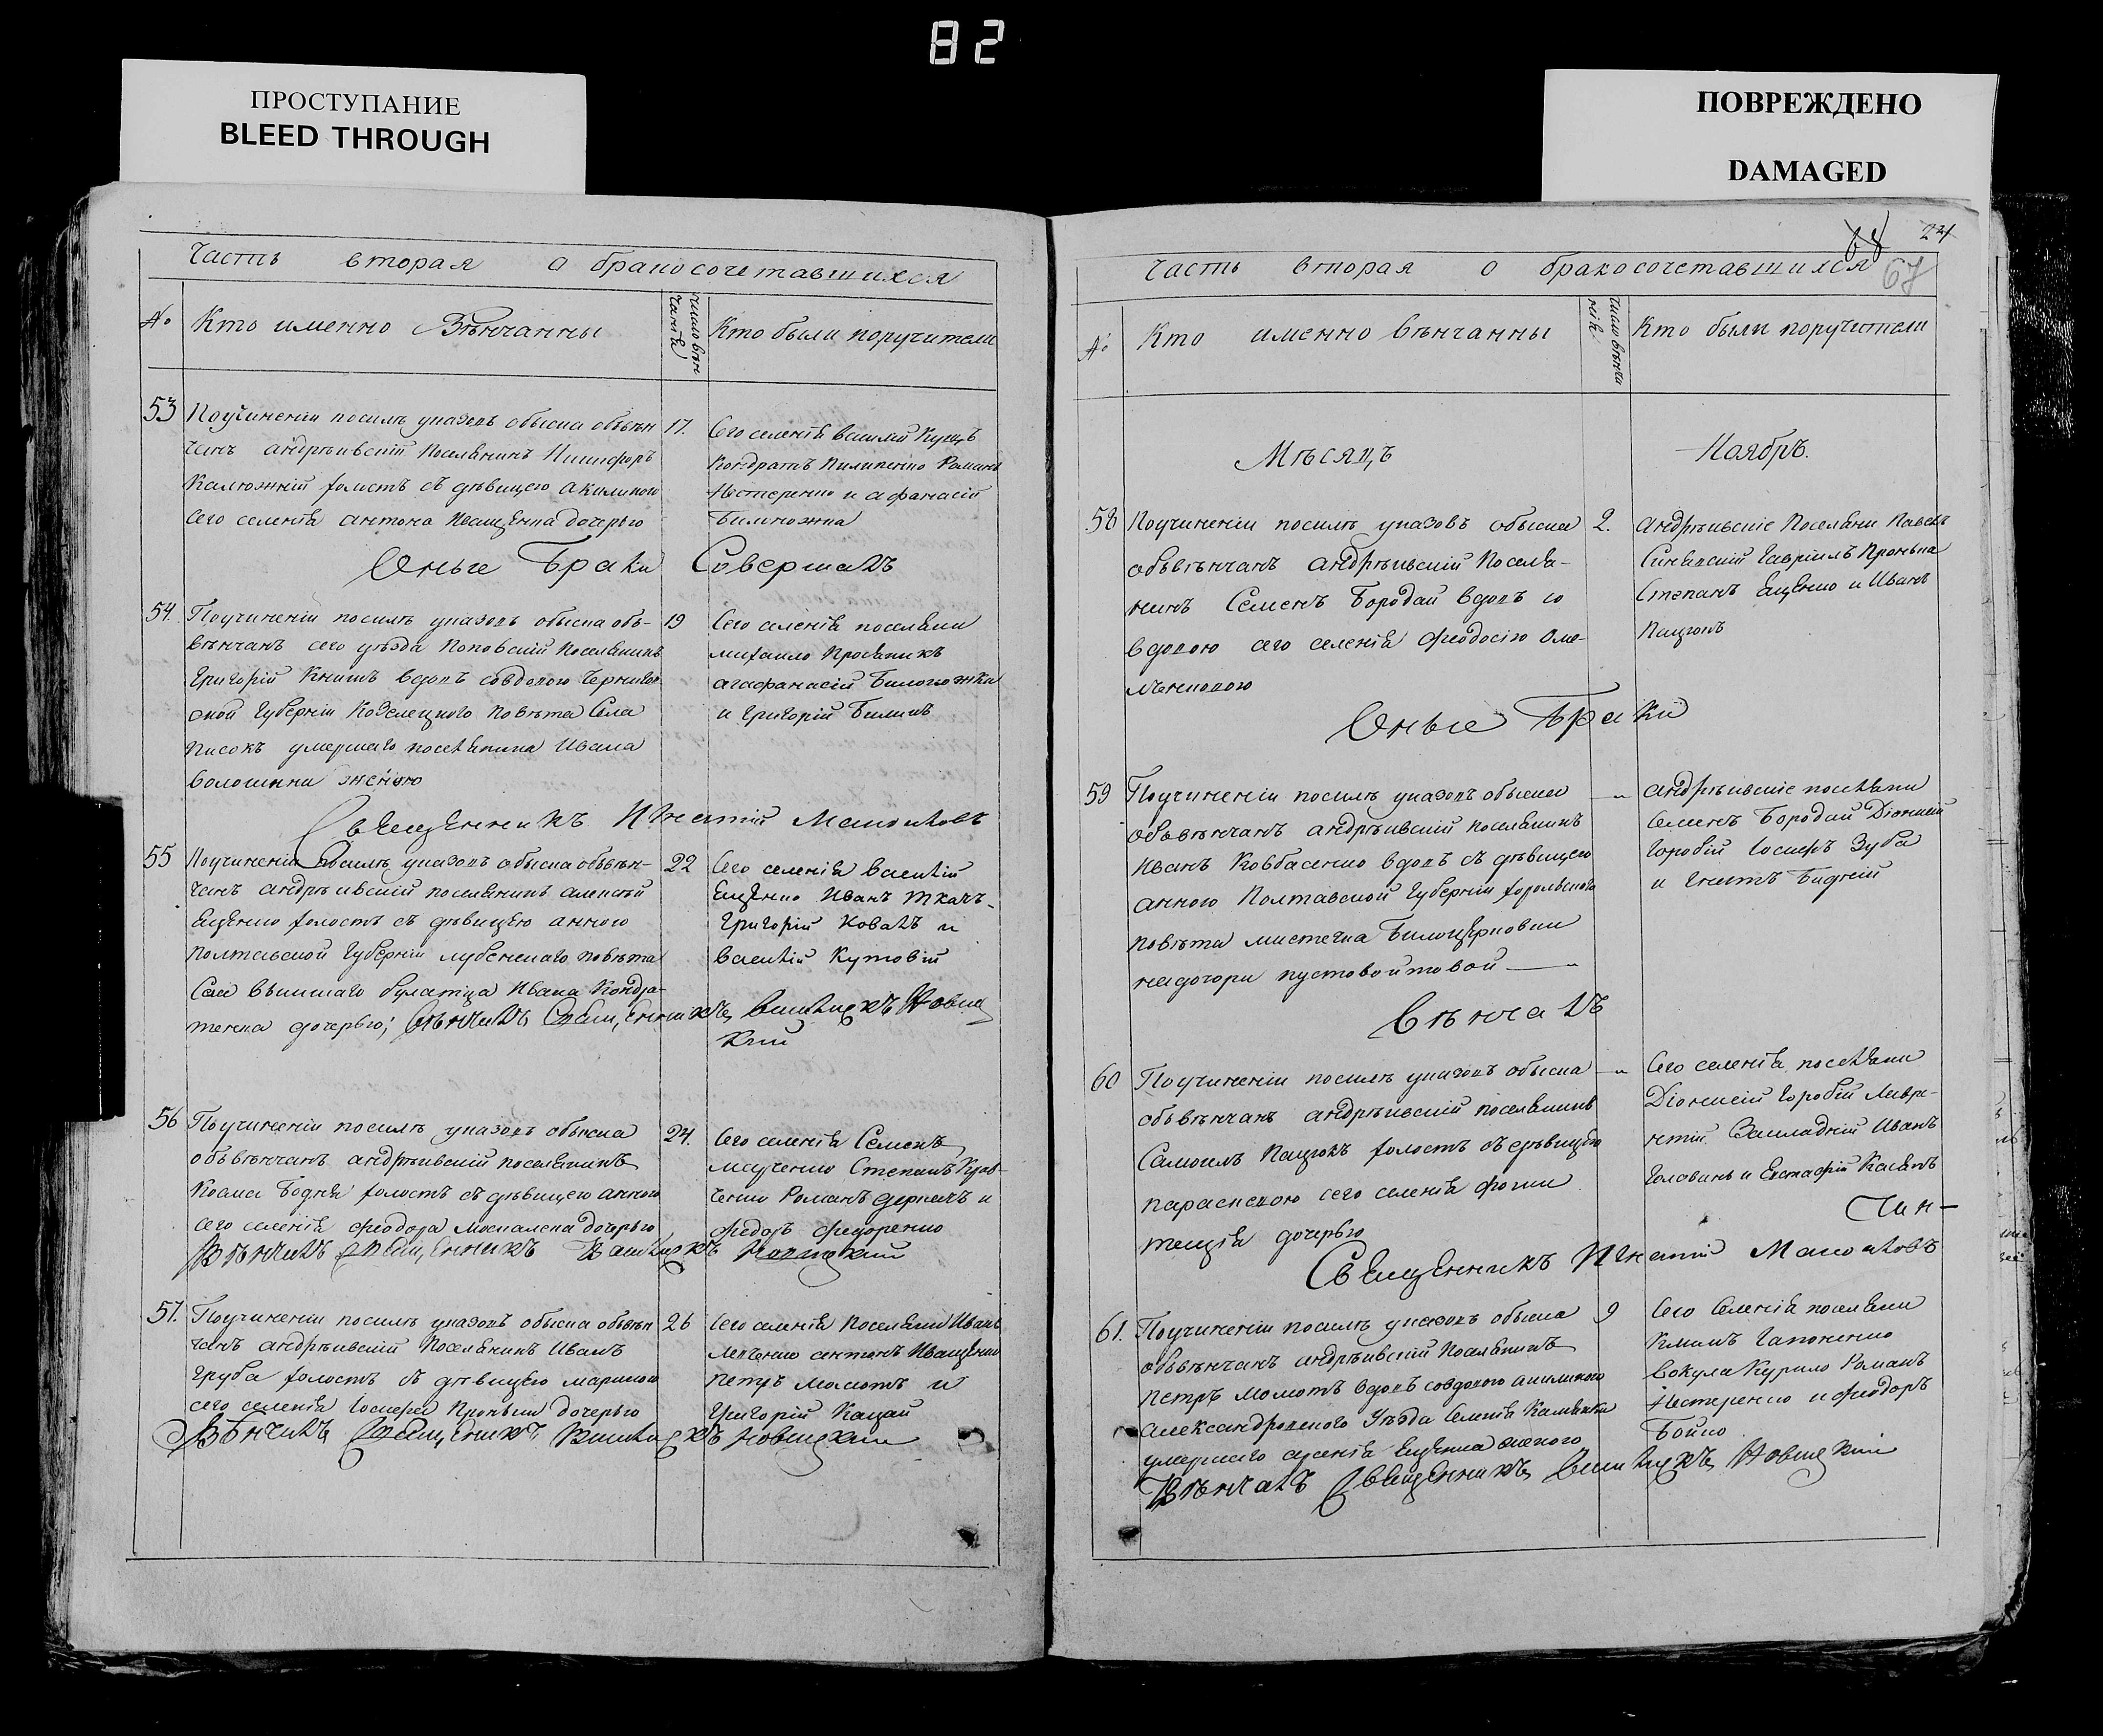 82
ПРОСТУПАНИЕ
BLEED THROUGH
ПОВРЕЖДЕНО
DAMAGED
Часть вторая о бракосочетавшихся
№ Кто именно Вѣнчанны
Кто были поручители
53 Поучиненіи посилѣ указовъ обыска обвѣн 17.
чанъ андрѣивскій поселянинъ Никифоръ
Калюжній холостъ съ дѣвицею акилиною
сего селенія антона Иващенка дочерью
Сего селенія василій Купецъ
Кондратъ Пилипенко Романъ
Нестеренко и афанасій
Оные Браки Совершалъ
54. Поучиненіи посилѣ указовъ обыска объ- 19
вѣнчанъ сего уѣзда поповскій поселянинъ
Григорій Книшъ вдовъ совдовою чернигов
ской губерніи Козелецкого повѣта Села
писокъ умершаго поселянина Ивана
волошина женою
Сего селенія поселяни
михаило Просяникъ
и Григорій Биликъ
Священникъ Игнатій
55 Поучиненіи посилѣ указовъ обыска обвѣн- 22
чанъ андрѣивскій поселянинъ алексѣй
Ещенко холостъ съ дѣвицею анною
полтавской губерніи лубенскаго повѣта
Ивана Кондра-
тенка дочерью;
Сего селенія василій
Ещенко Иванъ ткачъ
григорій Ковалъ и
василій Кутовій
56 Поучиненіи посилѣ указовъ обыска 24.
объвѣнчанъ андрѣивскій поселянинъ
Козма Бодня холостъ съ дѣвицею анною
сего селенія феодора москаленка дочерью
Сего селенія Семенъ
Степанъ
Романъ деркачъ и
федоръ федоренко
Вѣнчалъ Священникъ Новицкий
57. Поучиненіи посилѣ указовъ обыска обвѣн 26
чанъ андрѣивскій поселянинъ Иванъ
Груба холостъ съ дѣвицею мариною
сего селенія Іосифа Проньки дочерью
Сего селенія поселяни Иванъ
антонъ Иващенко
петръ момотъ и
григорій Кацай
Вѣнчалъ Священникъ Новицкий
68 24
67
Часть вторая о бракосочетавшихся
№ Кто именно вѣнчанны
Кто были поручители
Мѣсяцъ Ноябръ.
58 Поучиненіи посилѣ указовъ обыска 2.
объвѣнчанъ андрѣивскій поселя-
нинъ Семенъ Бородай вдовъ со
вдовою сего селенія феодосією Оме-
льянковою
андрѣивскіе поселяни Павелъ
Синявскій Гавріилъ Пронька
Степанъ Ещенко и Иванъ
Пацюкъ
Оные Браки
59 Поучиненіи посилѣ указовъ обыска — „
объвѣнчанъ андрѣивскій поселянинъ
Иванъ Ковбасенко вдовъ съ дѣвицею
анною Полтавской губерніи хорольского
повѣта мистечка Билоцерковки
надочори пустовойтовой
андрѣивскіе поселяни
Семенъ Бородай Діонисій
Горобій Іосифъ Зуба
и Гнатъ Бидній
Вѣнчалъ
60 Поучиненіи посилѣ указовъ обыска — „
объвѣнчанъ андрѣивскій поселянинъ
Самоилъ Пацюкъ холостъ съ дѣвицею
параскевою сего селенія
дочерью
Сего селенія поселяни
Діонисій Горобій Лавре-
нтій Закладній Иванъ
Голованъ и Евстафій Касянъ
Священникъ Игнатій
61. Поучиненіи посилѣ указовъ обыска 9
объвѣнчанъ андрѣивскій поселянинъ
Петръ Момотъ вдовъ совдовою акилиною
александровского Уѣзда Селенія Каменки
умершаго Ещенка женою
Сего Селенія поселяни
Климъ Гапоненко
вакула Курило Романъ
Нестеренко и феодоръ
Бойко
Вѣнчалъ Священникъ Новицкий